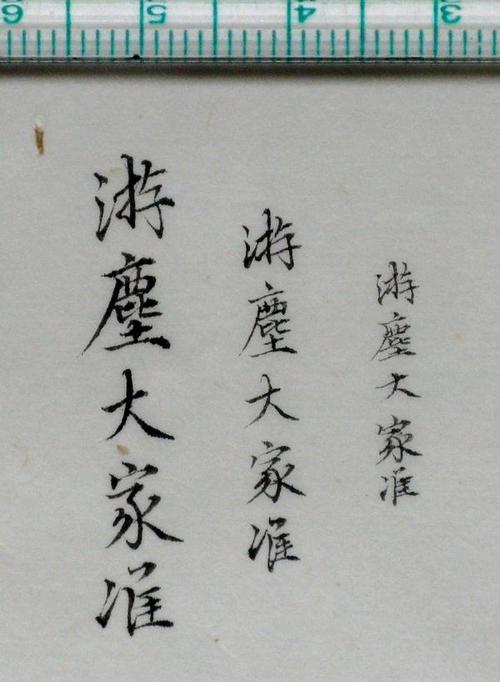 游塵大家准
游塵大家准
游塵大家准
6 5 4 3